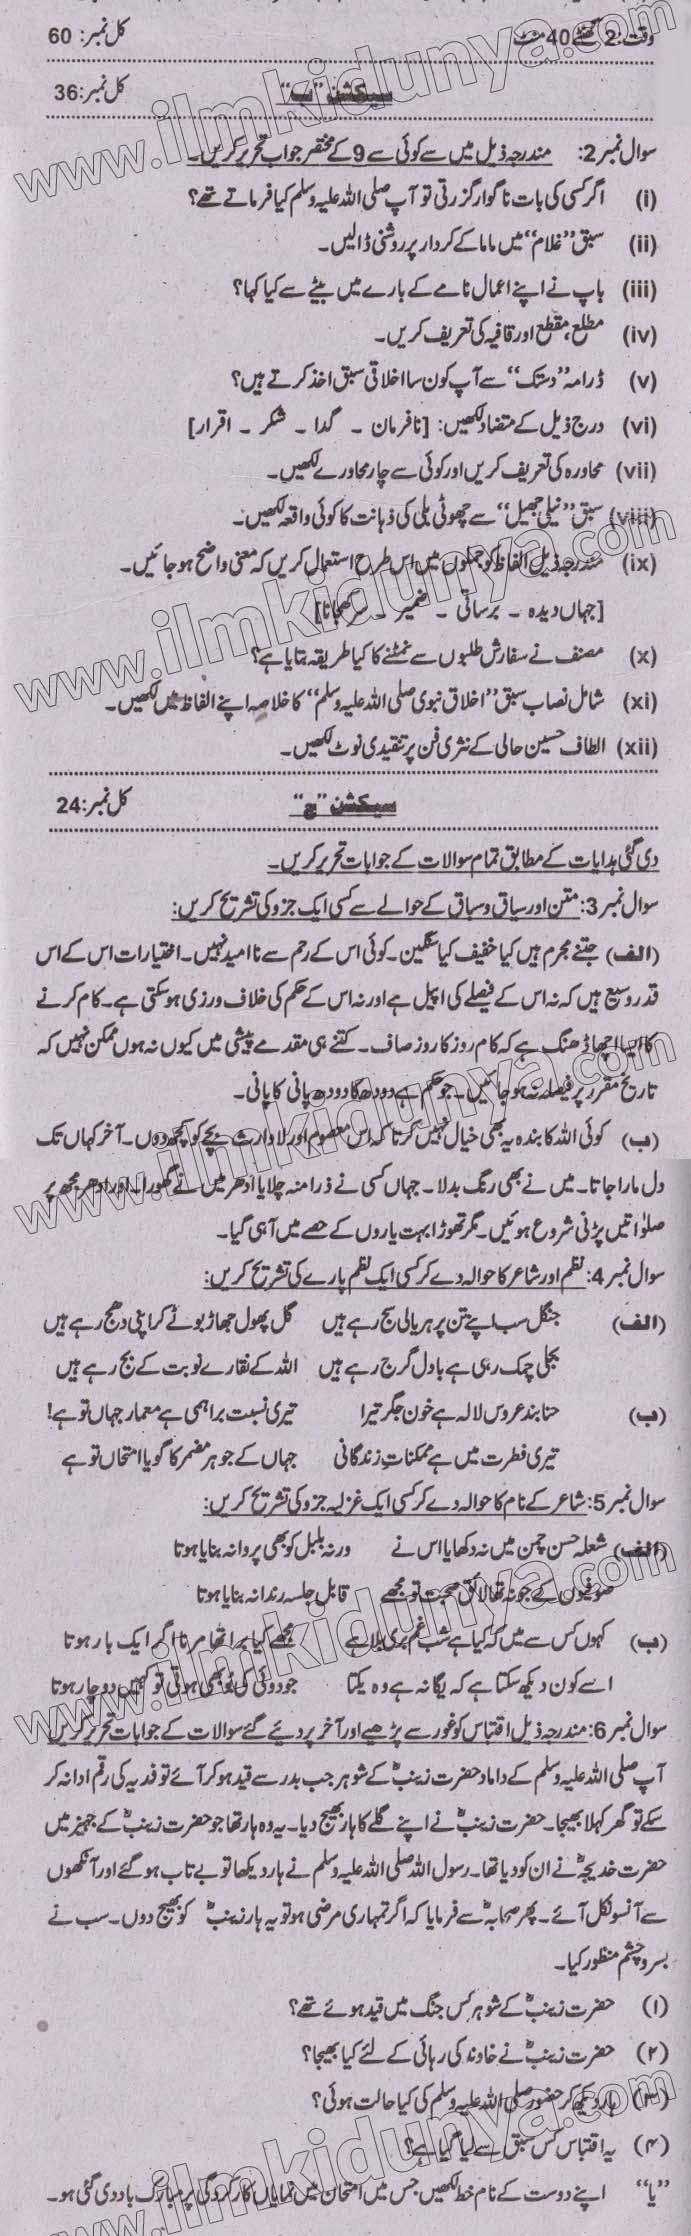 وقت: 2 گھنٹے 40 منٹ کل نمبر: 60
سیکشن "ب" کل نمبر: 36
سوال نمبر 2: مندرجہ ذیل میں سے کوئی سے 9 کے مختصر جواب تحریر کریں۔
(i) اگر کسی کی بات ناگوار گزرتی تو آپ صلی اللہ علیہ وسلم کیا فرماتے تھے؟
(ii) سبق "غلام" میں ماما کے کردار پر روشنی ڈالیں۔
(iii) باپ نے اپنے اعمال نامے کے بارے میں بیٹے سے کیا کہا؟
(iv) مطلع، مقطع اور قافیہ کی تعریف کریں۔
(v) ڈرامہ "دستک" سے آپ کون سا اخلاقی سبق اخذ کرتے ہیں؟
(vi) درج ذیل کے متضاد لکھیں: [نافرمان ۔ گدا ۔ شکر ۔ اقرار]
(vii) محاورہ کی تعریف کریں اور کوئی سے چار محاورے لکھیں۔
(viii) سبق "نیلی جھیل" سے چھوٹی بلی کی ذہانت کا کوئی واقعہ لکھیں۔
(ix) مندرجہ ذیل الفاظ کو جملوں میں اس طرح استعمال کریں کہ معنی واضح ہو جائیں۔
[جہاں دیدہ ۔ برساتی ۔ ضمیر ۔ سر کھجانا]
(x) مصنف نے سفارش طلبوں سے نمٹنے کا کیا طریقہ بتایا ہے؟
(xi) شامل نصاب سبق "اخلاق نبوی صلی اللہ علیہ وسلم" کا خلاصہ اپنے الفاظ میں لکھیں۔
(xii) الطاف حسین حالی کے نثری فن پر تنقیدی نوٹ لکھیں۔
سیکشن "ج" کل نمبر: 24
دی گئی ہدایات کے مطابق تمام سوالات کے جوابات تحریر کریں۔
سوال نمبر 3: متن اور سیاق و سباق کے حوالے سے کسی ایک جزو کی تشریح کریں:
(الف) جتنے مجرم ہیں کیا خفیف کیا سنگین۔ کوئی اس کے رحم سے ناامید نہیں۔ اختیارات اس کے اس
قدر وسیع ہیں کہ نہ اس کے فیصلے کی اپیل ہے اور نہ اس کے حکم کی خلاف ورزی ہو سکتی ہے۔ کام کرنے
کا ایسا اچھا ڈھنگ ہے کہ کام روز کا روز صاف۔ کتنے ہی مقدمے پیشی میں کیوں نہ ہوں ممکن نہیں کہ
تاریخ مقرر پر فیصلہ نہ ہو جائیں۔ جو حکم ہے دودھ کا دودھ پانی کا پانی۔
(ب) کوئی اللہ کا بندہ یہ بھی خیال نہیں کرتا کہ اس معصوم اور لاوارث بچے کو کچھ دوں۔ آخر کہاں تک
دل مارا جاتا۔ میں نے بھی رنگ بدلا۔ جہاں کسی نے ذرا منہ چلایا ادھر میں نے گھورا۔ اور ادھر مجھ پر
صلواتیں پڑنی شروع ہوئیں۔ مگر تھوڑا بہت یاروں کے حصے میں آ ہی گیا۔
سوال نمبر 4: نظم اور شاعر کا حوالہ دے کر کسی ایک نظم پارے کی تشریح کریں:
(الف) جنگل سب اپنے تن پر ہریالی سج رہے ہیں گل پھول جھاڑ بوٹے کر اپنی دھج رہے ہیں
بجلی چمک رہی ہے بادل گرج رہے ہیں اللہ کے نقارے نوبت کے بج رہے ہیں
(ب) حنا بند عروس لالہ ہے خون جگر تیرا تیری نسبت براہیمی ہے معمار جہاں تو ہے!
تیری فطرت میں ہے ممکناتِ زندگانی جہاں کے جوہر مضمر کا گویا امتحاں تو ہے
سوال نمبر 5: شاعر کے نام کا حوالہ دے کر کسی ایک غزلیہ جزو کی تشریح کریں:
(الف) شعلہ حسن چمن میں نہ دکھایا اس نے ورنہ بلبل کو بھی پروانہ بنایا ہوتا
صوفیوں کے جو نہ تھا لائق صحبت تو مجھے قابل جلسہ رندانہ بنایا ہوتا
(ب) کہوں کس سے میں کہ کیا ہے شب غم بری بلا ہے مجھے کیا برا تھا مرنا اگر ایک بار ہوتا
اسے کون دیکھ سکتا ہے کہ یگانہ ہے وہ یکتا جو دوئی کی بُو بھی ہوتی تو کہیں دو چار ہوتا
سوال نمبر 6: مندرجہ ذیل اقتباس کو غور سے پڑھیے اور آخر پر دیئے گئے سوالات کے جوابات تحریر کریں
آپ صلی اللہ علیہ وسلم کے داماد حضرت زینبؓ کے شوہر جب بدر سے قید ہو کر آئے تو فدیہ کی رقم ادا نہ کر
سکے تو گھر کہلا بھیجا۔ حضرت زینبؓ نے اپنے گلے کا ہار بھیج دیا۔ یہ وہ ہار تھا جو حضرت زینبؓ کے جہیز میں
حضرت خدیجہؓ نے ان کو دیا تھا۔ رسول اللہ صلی اللہ علیہ وسلم نے ہار دیکھا تو بے تاب ہو گئے اور آنکھوں
سے آنسو نکل آئے۔ پھر صحابہؓ سے فرمایا کہ اگر تمہاری مرضی ہو تو یہ ہار زینبؓ کو بھیج دوں۔ سب نے
بسر و چشم منظور کیا۔
(۱) حضرت زینبؓ کے شوہر کس جنگ میں قید ہوئے تھے؟
(۲) حضرت زینبؓ نے خاوند کی رہائی کے لئے کیا بھیجا؟
(۳) ہار دیکھ کر حضور صلی اللہ علیہ وسلم کی کیا حالت ہوئی؟
(۴) یہ اقتباس کس سبق سے لیا گیا ہے؟
"یا" اپنے دوست کے نام خط لکھیں جس میں امتحان میں نمایاں کارکردگی پر مبارک باد دی گئی ہو۔
www.ilmkidunya.com
www.ilmkidunya.com
www.ilmkidunya.com
www.ilmkidunya.com
www.ilmkidunya.com